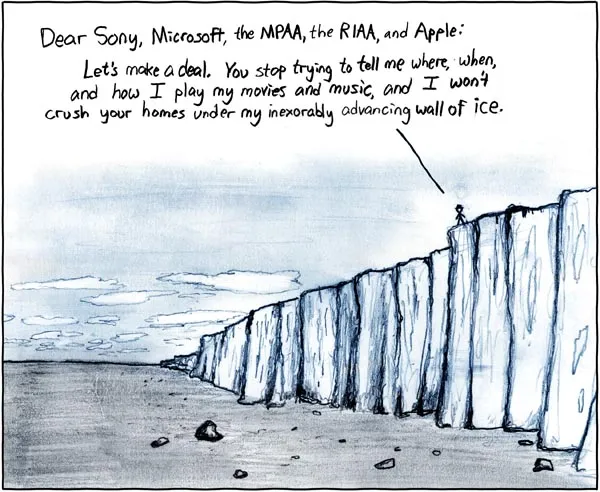 Dear Sony, Microsoft, the MPAA, the RIAA, and Apple:
Let's make a deal. You stop trying to tell me where, when,
and how I play my movies and music, and I won't
crush your homes under my inexorably advancing wall of ice.